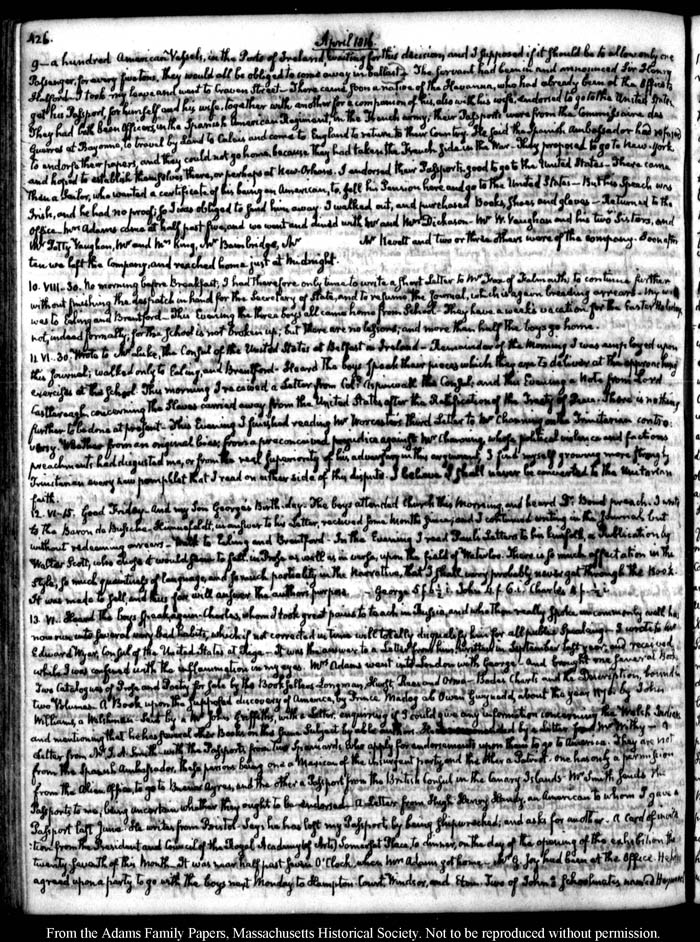 426.
April 1816.
9— a hundred American Vessels, in the Ports of Ireland waiting for this decision, and I supposed if it should be to allow only one
Passenger, for every five tons, they would all be obliged to come away in ballast— The Servant had been in and announced Sir Henry
Halford. I took my leave and went to Craven Street— There came soon a native of the Havanna, who had already been at the Office to
get his Passport, for himself and his wife, together with another for a companion of his, also with his wife, endorsed to go to the United States.
They had both been Officers, in the Spanish American Regiment, in the French army; their Passports were from the Commissaire des
Guerres at Bayonne, to travel by land to Calais and come to England to return to their Country. He said the Spanish Ambassador had refused
to endorse their papers, and they could not go home, because they had taken the French side in the War. They proposed to go to New-York
and hoped to establish themselves there, or perhaps at New-Orleans. I endorsed their Passports good to go to the United States— There came
then a Sailor, who wanted a certificate of his being an American, to sell his Pension here and go to the United States— But his Speech was
Irish, and he had no proof; so I was obliged to send him away. I walked out, and purchased Books, Shoes and gloves— Returned to the
Office. Mrs Adams came at half past five, and we went and dined with Mr and Mrs Dickason. Mr W. Vaughan and his two Sisters, and
Mr Petty Vaughan, Mr and Mrs King, Mr Bainbridge, Mr Mr Hewlett and two or three others were of the company. Soon after
ten we left the Company, and reached home just at Midnight.
10. VIII.30. No morning before Breakfast; I had therefore only time to write a short Letter to Mr Fox of Falmouth; to continue further
without finishing the despatch in hand for the Secretary of State, and to resume the Journal, which is again breeding arrears. My walk
was to Ealing and Brentford. This Evening the three boys all came home from School. They have a week's vacation for the Easter Holidays,
not, indeed formally; for the School is not broken up, but there are no lessons; and more than half the boys go home.
11. VI.30. Wrote to Mr Luke, the Consul of the United States at Belfast in Ireland— Remainder of the Morning I was employed upon
this Journal; walked only to Ealing, and Brentford— Heard the boys Speak their pieces which they are to deliver at the approaching
exercises at the School. This morning I received a Letter from Coll. Aspinwall the Consul, and this Evening a Note from Lord
Castlereagh, concerning the Slaves carried away from the United States after the Ratification of the Treaty of Peace. There is nothing
further to be done at present. This Evening I finished reading Mr Worcester's third Letter to Mr Channing on the Trinitarian contro-
versy. Whether from an original bias, from a preconceived prejudice against Mr Channing, whose political violence and factious
preachments had disgusted me, or from the real superiority of his adversary in this argument, I find myself growing more strongly
Trinitarian every new pamphlet that I read on either side of this dispute. I believe I shall never be converted to the Unitarian
faith.
12. VI.15. Good Friday. And my Son George's Birth-day. The boys attended church this Morning, and heard Dr Bond preach. I wrote
to the Baron de Bussche Hunnefeldt, in answer to his Letter, received some Months since; and I continued writing in the Journal but
without redeeming arrears. Walk to Ealing and Brentford— In the Evening I read Paul's Letters to his kinsfolk, a Publication by
Walter Scott, who it would seem to fall, in Prose as well as in verse, upon the field of Waterloo. There is so much affectation in the
Style, so much quaintness of language, and so much partiality in the Narrative, that I shall very probably never get through the Book.
It was made to sell and thus far will answer the author's purpose.— George 5 f John 4 f Charles 4 f
13. VI. Heard the boys Speak again. Charles, whom I took great pains to teach in Russia, and who then really spoke, uncommonly well, has
now run into several very bad habits, which if not corrected in time will totally disqualify him for all public Speaking— I wrote to
Edward Wyer, Consul of the United States at Riga.— It was the answer to a Letter from him written in September last year; and received
while I was confined with the inflammation in my eyes. Mrs Adams went into London with George— And brought me several Books.
Two Catalogues of Prose and Poetry for Sale by the Booksellers Longman, Hurst, Rees and Orme— Charts and the Description, bound in
two Volumes. A Book upon the supposed discovery of America, by Prince Madog ab Owen Gwynedd, about the year 1170. by John
Williams, a Welshman. Sent by a Mr John Griffiths, with a Letter, enquiring if I could give any information concerning the Welsh Indians
and mentioning that he has several other Books on the same subject by able authors.
Letter from Mr J. A. Smith with the Passports from two Spaniards, who apply for endorsements upon them to go to America. They are not
from the Spanish Ambassador, these persons being one a Mexican of the insurgent party, and the other a Patriot. One has only a permission
from the Alien Office, to go to Buenos Ayres, and the other a Passport from the British Consul in the Canary Islands. Mr Smith sends the
Passports to me, being uncertain whether they ought to be endorsed. A Letter from Hugh Henry Handy, an American to whom I gave a
Passport last June. He writes from Bristol. Says he has lost my Passport, by being shipwrecked; and asks for another. A Card of invita-
tion from the President and Council of the Royal Academy (of Arts) Somerset Place, to dinner, on the day of the opening of the exhibition the
twenty seventh of this Month. It was near half past seven O'Clock, when Mrs Adams got home— Mr B. Joy had been at the Office. He has
agreed upon a party to go with the boys next Monday to Hampton-Court, Windsor, and Eton. Two of John's Schoolmates named
From the Adams Family Papers, Massachusetts Historical Society. Not to be reproduced without permission.